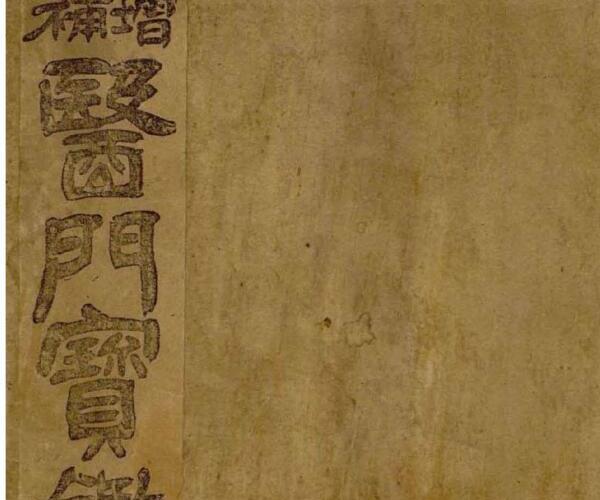 增補
醫門寶